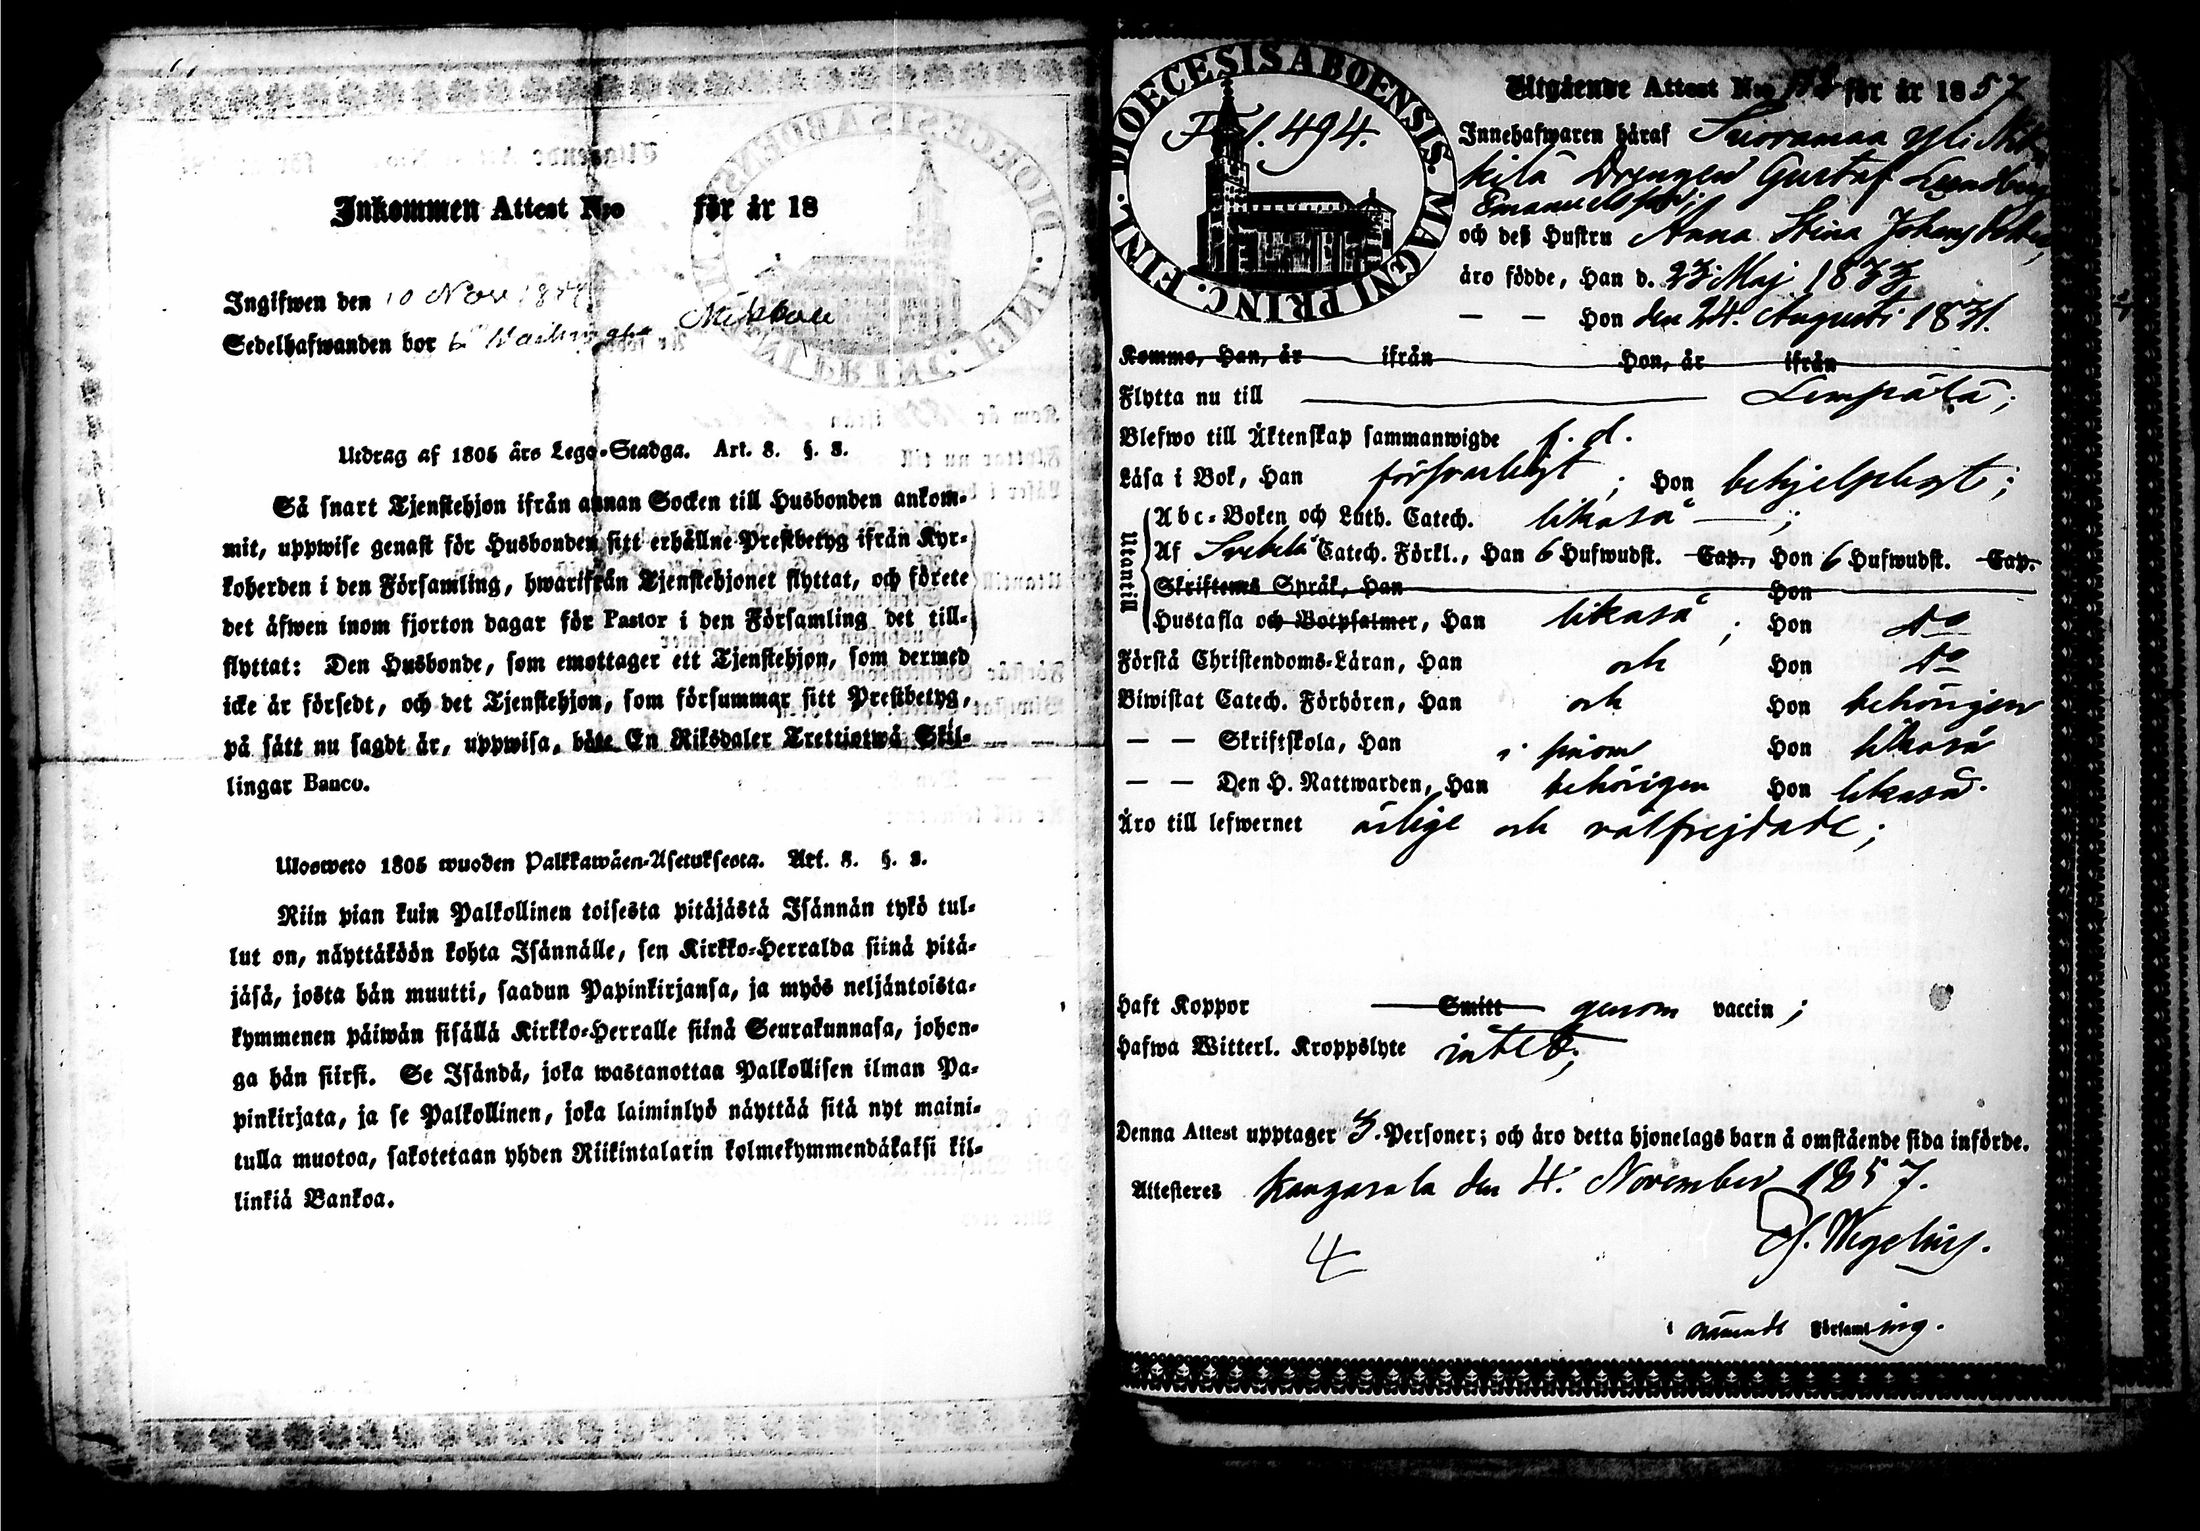 Inkommen Attest N:o för år 18
Ingifwen den 10 Nov 18
Sedelhafwanden bor
Utdrag af 1805 års Lego-Stadga. Art. 8. §. 8.
Så snart Tjenstehjon ifrån annan Socken till Husbonden ankom-
mit, uppwise genast för Husbonden sitt erhållne Prestbetyg ifrån Kyr-
koherden i den Församling, hwarifrån Tjenstehjonet flyttat, och förete
det äfwen inom fjorton dagar för Pastor i den Församling det till-
flyttat: Den Husbonde, som emottager ett Tjenstehjon, som dermed
icke är försedt, och det Tjenstehjon, som försummar sitt Prestbetyg,
på sätt nu sagdt är, uppwisa, böte En Riksdaler Trettiotwå Skil-
lingar Banco.
Ulosweto 1805 wuoden Palkkawäen-Asetuksesta. Art. 8. §. 8.
Niin pian kuin Palkollinen toisesta pitäjästä Isännän tykö tul-
lut on, näyttäköön kohta Isännälle, sen Kirkko-Herralda siinä pitä-
jäsä, josta hän muutti, saadun Papinkirjansa, ja myös neljäntoista-
kymmenen päiwän sisällä Kirkko-Herralle siinä Seurakunnasa, johon-
ga hän siirsi. Se Isändä, joka wastanottaa Palkollisen ilman Pa-
pinkirjata, ja se Palkollinen, joka laiminlyö näyttää sitä nyt maini-
tulla muotoa, sakotetaan yhden Riikintalarin kolmekymmendäkaksi kil-
linkiä Bankoa.
DIOECESIS ABOENSIS. MAGNI PRINC. FINL.
Fol. 494.
Utgående Attest N:o för år 1857
Innehafwaren häraf Suoramaa yli
kilä Drengen Gustaf Lundberg
Emanuelsson
och deß Hustru Anna Stina Johansdotter,
äro födde, Han d. 23 Maj 1833
— — Hon den 24. Augusti 1831.
Kommo, Han, år ifrån Hon, år ifrån
Flytta nu till Lempälä;
Blefwo till Äktenskap sammanwigde f. d.
Läsa i Bok, Han försvarligt ; Hon behjelpligt;
Utantill
Abc-Boken och Luth. Catech. likaså ;
Af Svebel. Catech. Förkl., Han 6 Hufwudst. Cap., Hon 6 Hufwudst. Cap.
Skriftens Språk, Han Hon
Hustafla och Botpsalmer, Han likaså ; Hon do
Förstå Christendoms-Läran, Han och Hon do
Biwistat Catech. Förhören, Han och Hon behörigen
— — Skriftskola, Han Hon likaså
— — Den H. Nattwarden, Han behörigen Hon likaså.
Äro till lefwernet ärlige och välfrejdade;
Haft Koppor Smitt genom vaccin;
Hafwa Witterl. Kroppslyte intet;
Denna Attest upptager 3. Personer; och äro detta hjonelags barn å omstående sida införde.
Attesteres Kangasala den 4. November 1857.
Wegelius.
4
i nämnde Församling.